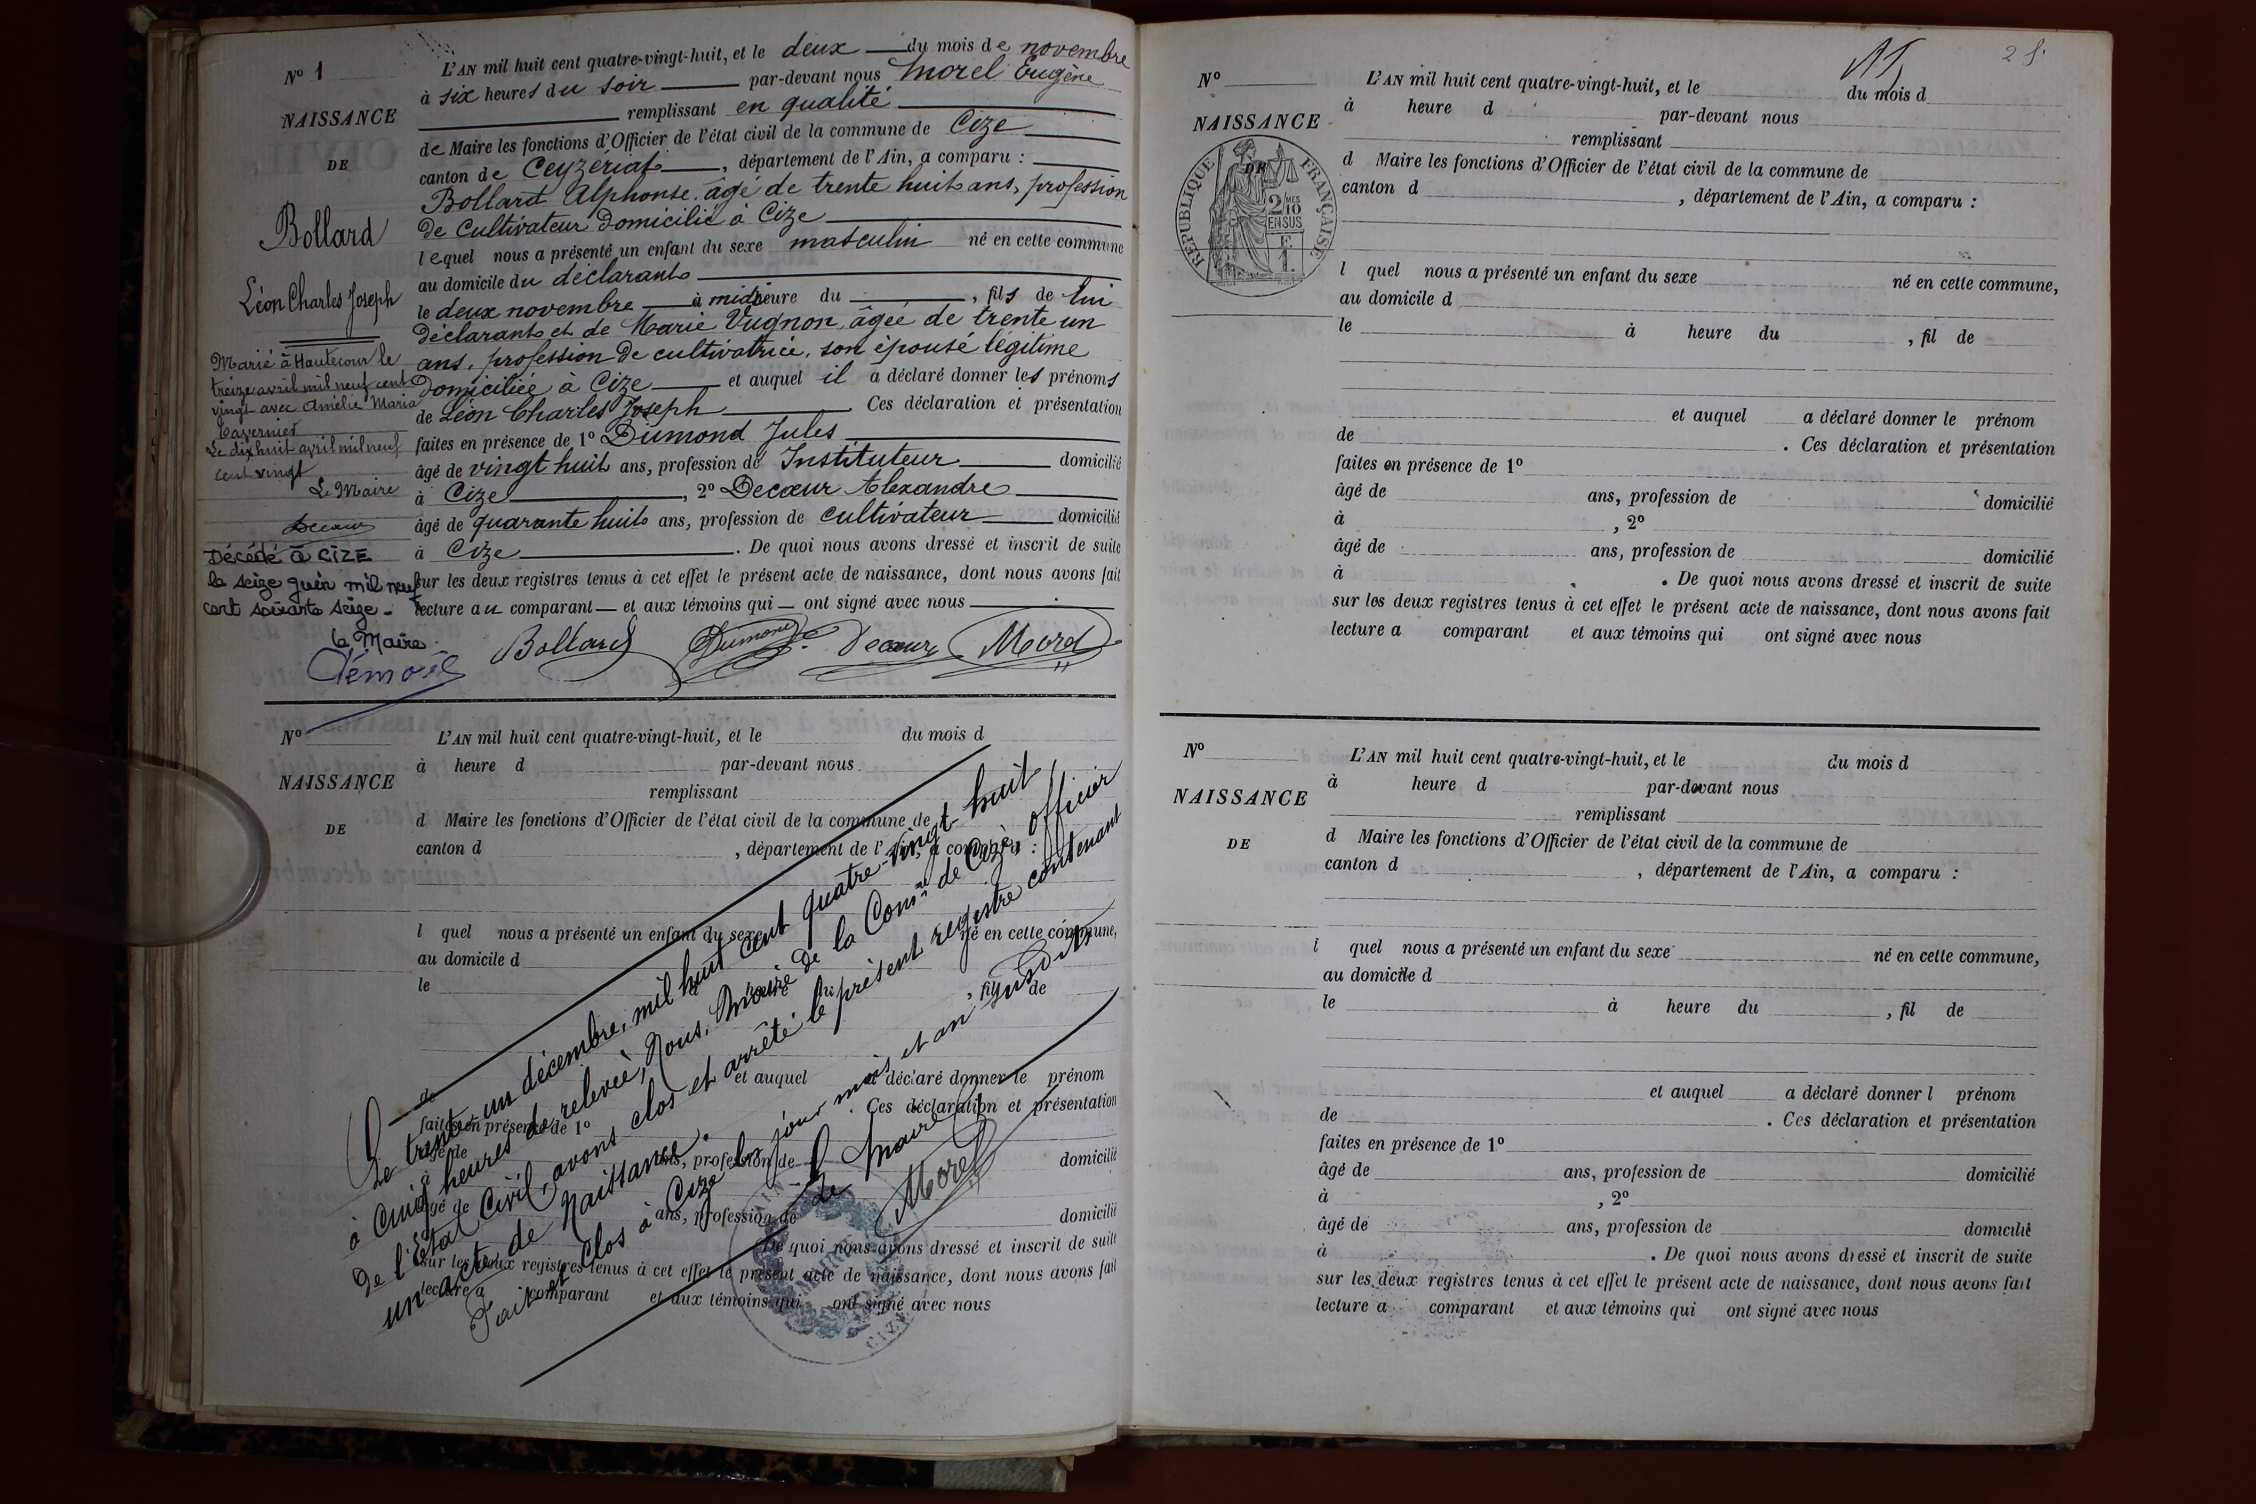 N° 1
NAISSANCE
DE
Bollard
Léon Charles Joseph
Marié à Hautecour le
treize avril mil neuf cent
vingt avec Amélie Maria
Tavernier
Le dix huit avril mil neuf
cent vingt
Le Maire
Decœur
Décédé à CIZE
le seize juin mil neuf
cent soixante seize -
le Maire
L'AN mil huit cent quatre-vingt-huit, et le deux du mois de novembre
à six heures du soir par-devant nous Morel Eugène
remplissant en qualité
de Maire les fonctions d'Officier de l'état civil de la commune de Cize
canton de Ceyzériat, département de l'Ain, a comparu :
Bollard Alphonse, âgé de trente huit ans, profession
de Cultivateur domicilié à Cize
lequel nous a présenté un enfant du sexe masculin né en cette commune
au domicile du déclarant
le deux novembre à midi heure du , fils de lui
déclarant et de Marie Vugnon, âgée de trente un
ans, profession de cultivatrice, son épouse légitime
domiciliée à Cize et auquel il a déclaré donner les prénoms
de Léon Charles Joseph Ces déclaration et présentation
faites en présence de 1° Dumond Jules
âgé de vingt huit ans, profession de Instituteur domicilié
à Cize, 2° Decœur Alexandre
âgé de quarante huit ans, profession de cultivateur domicilié
à Cize. De quoi nous avons dressé et inscrit de suite
sur les deux registres tenus à cet effet le présent acte de naissance, dont nous avons fait
lecture au comparant et aux témoins qui ont signé avec nous
Bollard Dumond Decœur Morel
N°
NAISSANCE
DE
L'AN mil huit cent quatre-vingt-huit, et le du mois d
à heure d par-devant nous
remplissant
d Maire les fonctions d'Officier de l'état civil de la commune de
canton d , département de l'Ain, a comparu :
l quel nous a présenté un enfant du sexe né en cette commune,
au domicile d
le à heure du , fil de
et auquel a déclaré donner le prénom
de . Ces déclaration et présentation
faites en présence de 1°
âgé de ans, profession de domicilié
à
âgé de ans, profession de domicilié
De quoi nous avons dressé et inscrit de suite
sur les deux registres tenus à cet effet le présent acte de naissance, dont nous avons fait
lecture a comparant et aux témoins qui ont signé avec nous
Le trente-un décembre, mil huit cent quatre-vingt huit,
à cinq heures de relevée, Nous, Maire de la Comne de Cize, officier
de l'Etat Civil, avons clos et arrêté le présent registre contenant
un acte de Naissance.
Fait et clos à Cize les jour mois et an susdits
le Maire
Morel
MAIRIE
CIZE
28.
N°
NAISSANCE
DE
RÉPUBLIQUE FRANÇAISE
2 MES 10
EN SUS
F
1.
L'AN mil huit cent quatre-vingt-huit, et le du mois d
à heure d par-devant nous
remplissant
d Maire les fonctions d'Officier de l'état civil de la commune de
canton d , département de l'Ain, a comparu :
l quel nous a présenté un enfant du sexe né en cette commune,
au domicile d
le à heure du , fil de
et auquel a déclaré donner le prénom
de . Ces déclaration et présentation
faites en présence de 1°
âgé de ans, profession de domicilié
à , 2°
âgé de ans, profession de domicilié
à . De quoi nous avons dressé et inscrit de suite
sur les deux registres tenus à cet effet le présent acte de naissance, dont nous avons fait
lecture a comparant et aux témoins qui ont signé avec nous
N°
NAISSANCE
DE
L'AN mil huit cent quatre-vingt-huit, et le du mois d
à heure d par-devant nous
remplissant
d Maire les fonctions d'Officier de l'état civil de la commune de
canton d , département de l'Ain, a comparu :
l quel nous a présenté un enfant du sexe né en cette commune,
au domicile d
le à heure du , fil de
et auquel a déclaré donner l prénom
de . Ces déclaration et présentation
faites en présence de 1°
âgé de ans, profession de domicilié
à , 2°
âgé de ans, profession de domicilié
à . De quoi nous avons dressé et inscrit de suite
sur les deux registres tenus à cet effet le présent acte de naissance, dont nous avons fait
lecture a comparant et aux témoins qui ont signé avec nous